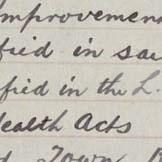 Improvemen
fied in sai
fied in the L.
Health Acts
d Town